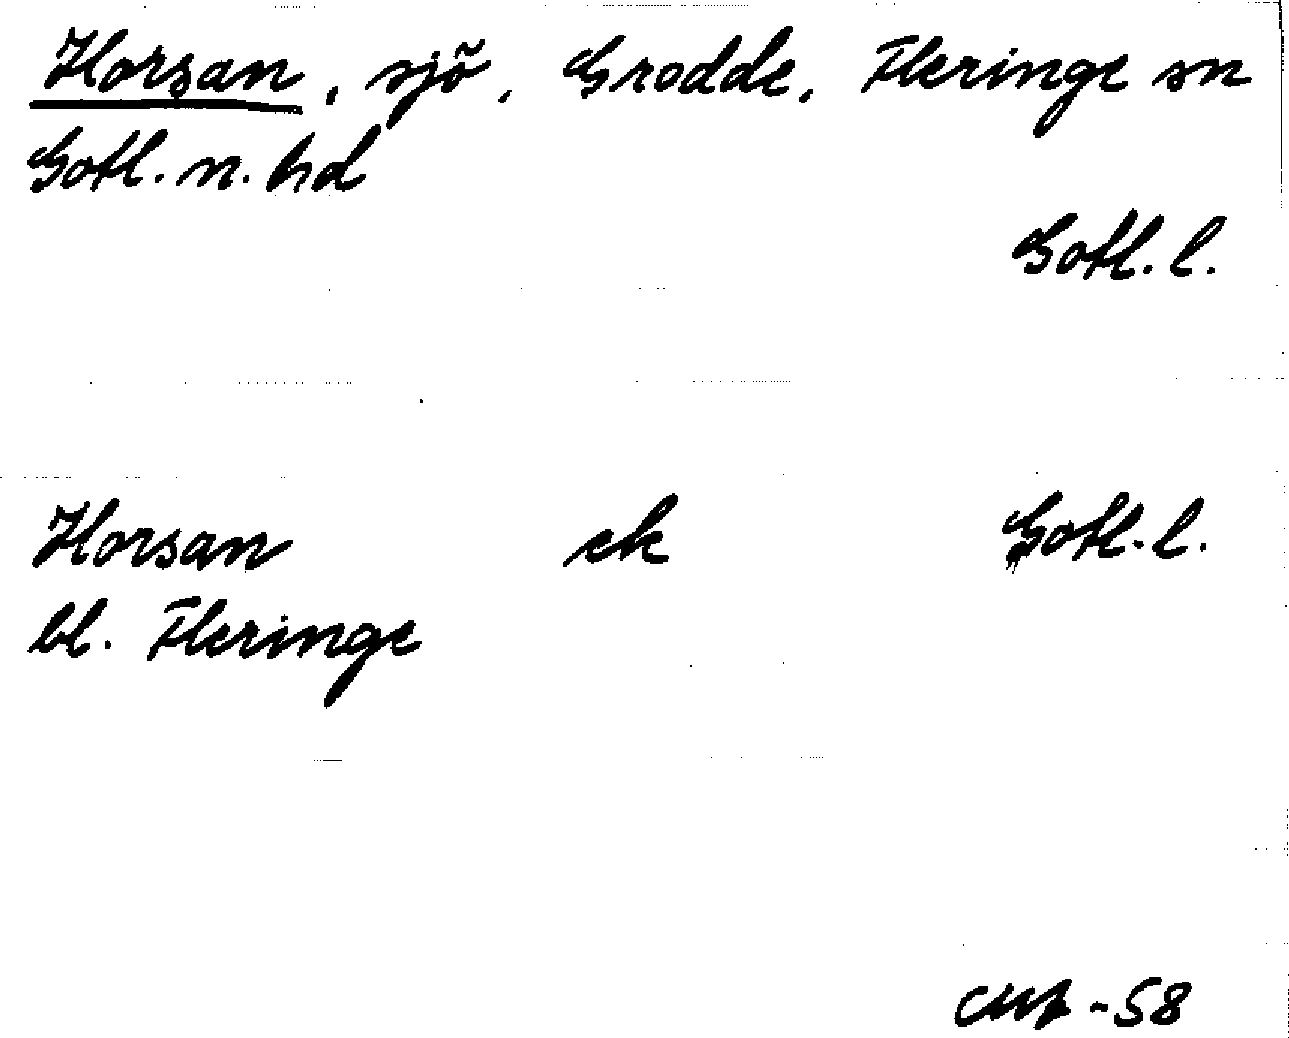 Horsan, sjö, Grodde, Fleringe sn
Gotl. n. hd
Gotl. l.
Horsan ek Gotl. l.
bl. Fleringe
-58